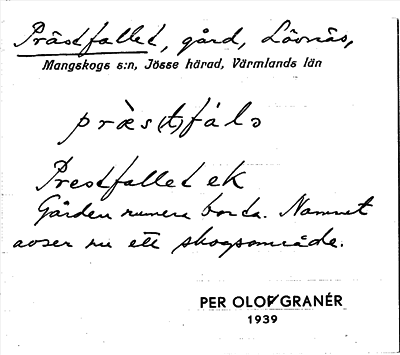 Prästfallet, gård, Lövnäs,
Mangskogs s:n, Jösse härad, Värmlands län
præ̀s(t)fálə
Prestfallet ek
Gården numera borta. Namnet
avser nu ett skogsområde.
PER OLOF GRANÉR
1939